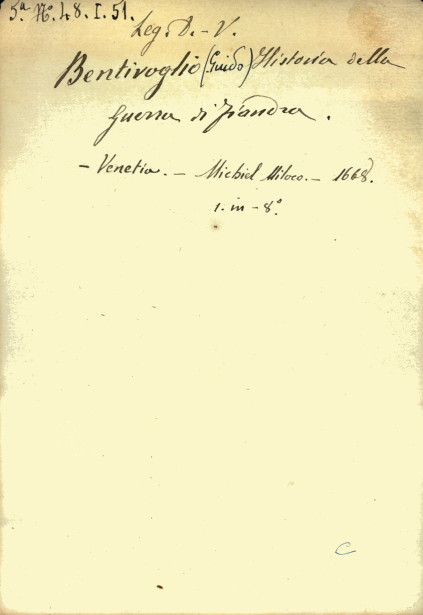 5.ª N.º 48. I. 51.
Leg. D. - V.
Bentivoglio (Guido) Historia della
guerra di Fiandra.
- Venetia. - Michiel Miloco. - 1668.
1. in - 8º
C